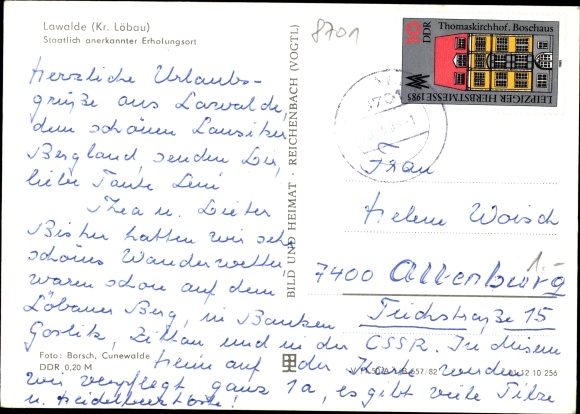 Lawalde (Kr. Löbau)
Staatlich anerkannter Erholungsort
8701
10
DDR
Thomaskirchhof, Boschaus
LEIPZIGER HERBSTMESSE 1985
Herzliche Urlaubs-
grüße aus Lawalde,
dem schönen Lausitzer
Bergland, senden Dir,
liebe Tante Leni
Thea u. Dieter
Bisher hatten wir sehr
schönes Wanderwetter,
waren schon auf dem
Löbauer Berg, in Bautzen
Görlitz, Zittau und in der CSSR. In diesem
Heim auf der Karte werden
wir verpflegt ganz 1a, es gibt viele Pilze
u. Heidelbeeren!
BILD UND HEIMAT · REICHENBACH (VOGTL)
Frau
Helene Woisch
7400 Altenburg
Teichstraße 15
1.-
Foto: Borsch, Cunewalde
DDR 0,20 M
12 10 256